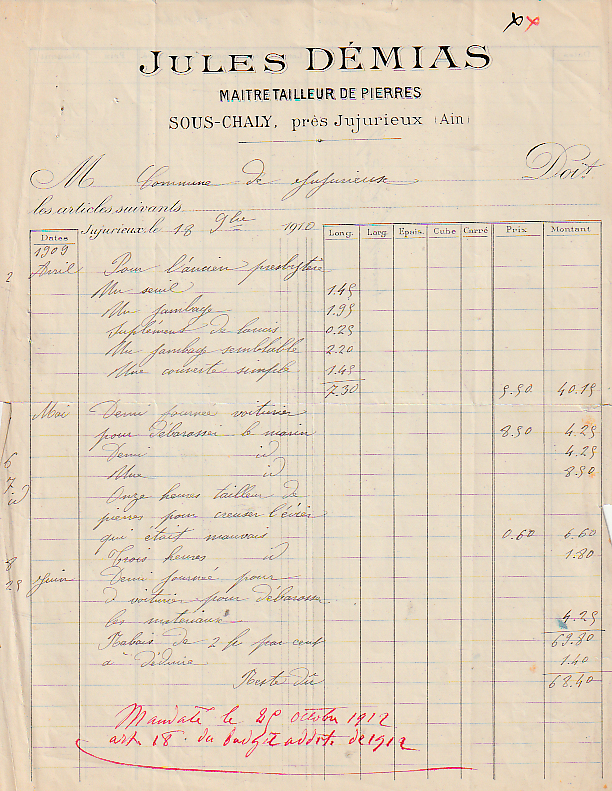 JULES DÉMIAS
MAITRE TAILLEUR DE PIERRES
SOUS-CHALY, près Jujurieux (Ain)
M Commune de Jujurieux Doit
les articles suivants
Jujurieux le 18 9bre 1910
Dates Long. Larg. Epais. Cube Carré Prix Montant
1909
2 Avril Pour l'ancien presbytère
Un seuil 1.45
Un jambage 1.95
Suplément de 0.25
Un jambage semblable 2.20
Une couverte simple 1.45
7.30 5.50 40.15
Mai Demi journée voiturier
pour débarosser le marin 8.50 4.25
6 Demi id 4.25
7 Une id 8.50
id Onze heures tailleur de
pierres pour creuser l'évier
qui était mauvais 0.60 6.60
8 Trois heures id 1.80
25 Juin Demi journé pour
d voiturier pour débarosser
les materiaux 4.25
69.80
Rabais de 2 fr par cent
à déduire 1.40
Reste dû 68.40
Mandaté le 25 octobre 1912
art 18 du budget addit. de 1912